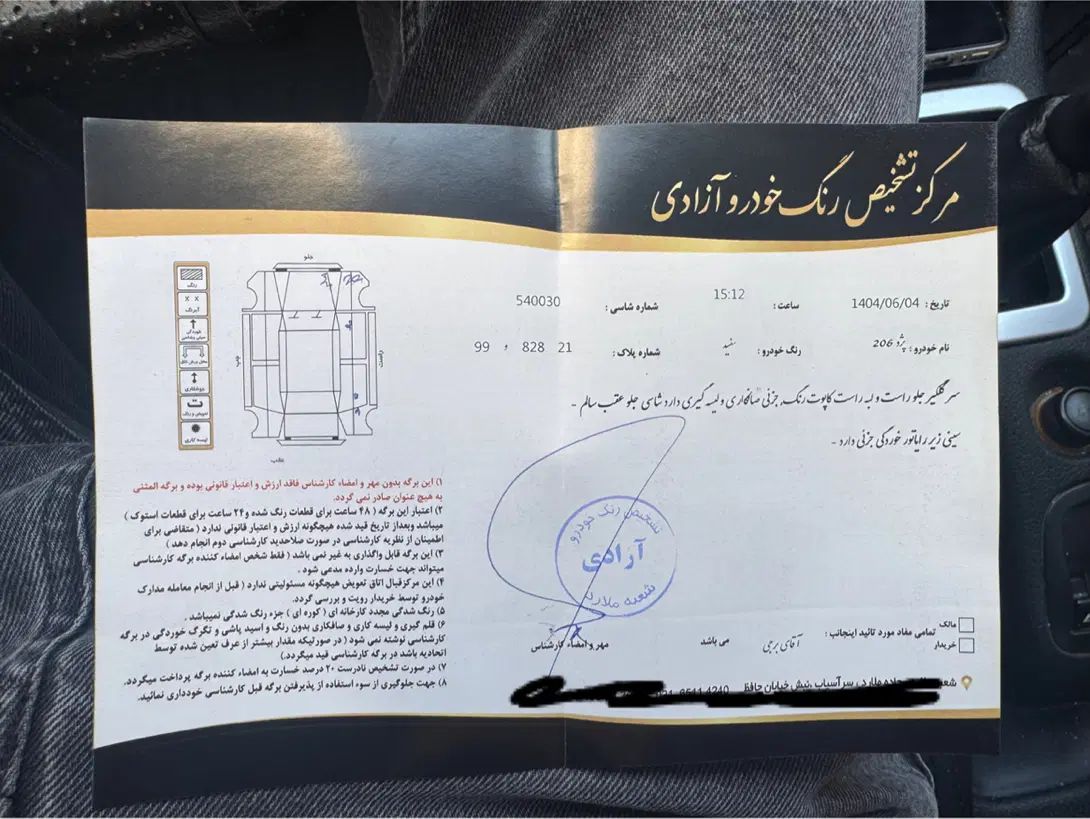 مرکز تشخیص رنگ خودرو آزادی
تاریخ : 1404/06/04
ساعت : 15:12
شماره شاسی : 540030
نام خودرو : پژو 206
رنگ خودرو : سفید
شماره پلاک : 99 و 828 21
سر گلگیر جلو راست و لبه راست کاپوت رنگ، جزئی صافکاری و لیسه گیری دارد شاسی جلو عقب سالم -
سینی زیر رادیاتور خوردگی جزئی دارد -
جلو
راست
چپ
عقب
رنگ
x x
آبرنگ
خوردگی
جوشکاری
تعویض و رنگ
لیسه کاری
۱) این برگه بدون مهر و امضاء کارشناس فاقد ارزش و اعتبار قانونی بوده و برگه المثنی
به هیچ عنوان صادر نمی گردد.
۲) اعتبار این برگه ( ۴۸ ساعت برای قطعات رنگ شده و ۲۴ ساعت برای قطعات استوک )
میباشد وبعداز تاریخ قید شده هیچگونه ارزش و اعتبار قانونی ندارد ( متقاضی برای
اطمینان از نظریه کارشناسی در صورت صلاحدید کارشناسی دوم انجام دهد )
۳) این برگه قابل واگذاری به غیر نمی باشد ( فقط شخص امضاء کننده برگه کارشناسی
میتواند جهت خسارت وارده مدعی شود .
۴) این مرکزقبال اتاق تعویض هیچگونه مسئولیتی ندارد ( قبل از انجام معامله مدارک
خودرو توسط خریدار رویت و بررسی گردد.
۵) رنگ شدگی مجدد کارخانه ای ( کوره ای ) جزء رنگ شدگی نمیباشد .
۶) قلم گیری و لیسه کاری و صافکاری بدون رنگ و اسید پاشی و تگرگ خوردگی در برگه
کارشناسی نوشته نمی شود ( در صورتیکه مقدار بیشتر از عرف تعین شده توسط
اتحادیه باشد در برگه کارشناسی قید میگردد.)
۷) در صورت تشخیص نادرست ۲۰ درصد خسارت به امضاء کننده برگه پرداخت میگردد.
۸) جهت جلوگیری از سوء استفاده از پذیرفتن برگه قبل کارشناسی خودداری نمائید.
تشخیص رنگ خودرو
آزادی
شعبه ملارد
مهر و امضاء کارشناس
مالک
خریدار
تمامی مفاد مورد تائید اینجانب : آقای برجی می باشد
جاده ملارد، سرآسیاب، نبش خیابان حافظ